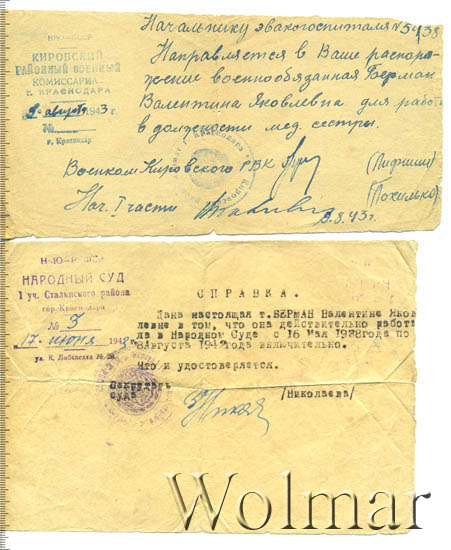 НКО-СССР
КИРОВСКИЙ
РАЙОННЫЙ ВОЕННЫЙ
КОМИССАРИАТ
г. КРАСНОДАРА
9 августа 1943 г.
№
г. Краснодар
Начальнику эвакогоспиталя N 5438
Направляется в Ваше распоря-
жение военнообязанная Берман
Валентина Яковлевна для работы
в должности мед. сестры.
Военком Кировского РВК
Нач. I части
(Похилько)
9.8.43 г.
НКЮ-РСФСР
НАРОДНЫЙ СУД
1 уч. Сталинского района
гор. Краснодара
№ 3
17 июня 1943 г.
ул. К. Либкнехта №
СПРАВКА.
Дана настоящая т. БЕРМАН Валентине Яков
левне в том, что она действительно работа
ла в Народном Суде с 16 мая 1938года по
8августа 1942года включительно.
Что и удостоверяется.
Секретарь
суда
/Николаева/
Wolmar